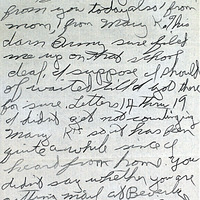 from you today also from
mom, from Mary K. This
darn Army sure filed
me up on that school
deal, I suppose I should
of waited till I got there
for sure. Letters 14 thru 19
I didn't get not counting
Mary K's so it has been
quite a while since I
heard from home. You
didn't say whether you are
getting mail at Beverly